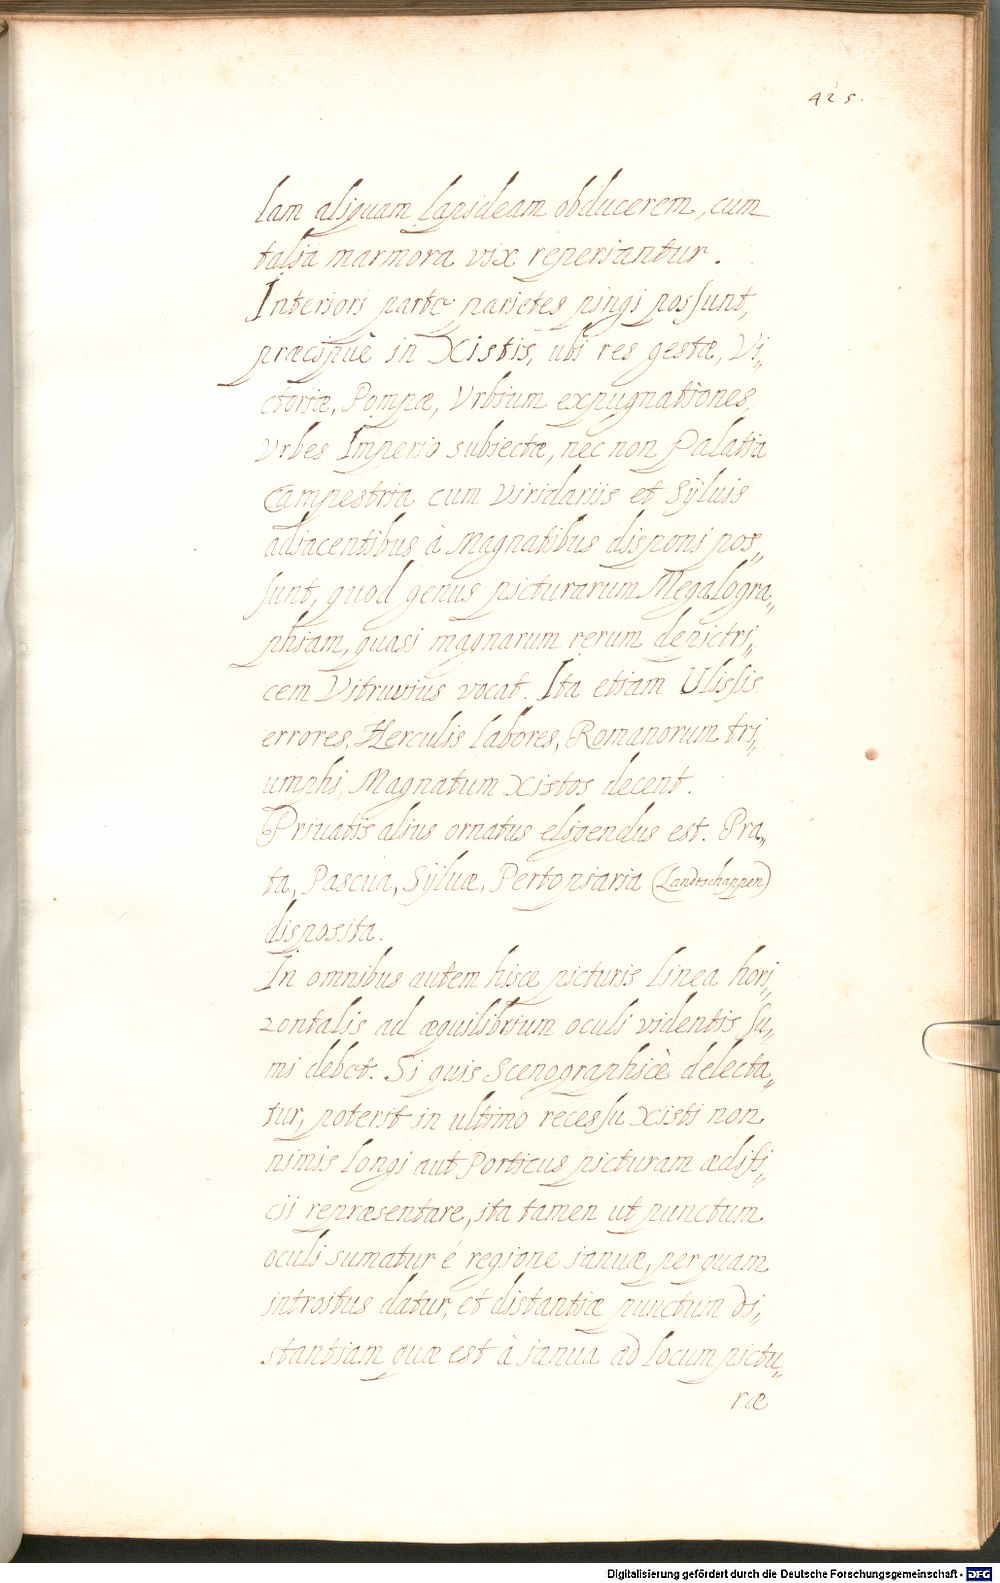 425.
lam aliquam lapideam obducerem, cum
talia marmora vix reperiantur.
Interiori parte parietes pingi possunt,
præcipuè in Xistis, ubi res gestæ, Vi„
ctoriæ, Pompæ, Vrbium expugnationes,
Vrbes Imperio subiectæ, nec non Palatia
Campestria cum Viridariis et Sÿluis
adiacentibus à Magnatibus disponi pos„
sunt, quod genus picturarum Megalogra„
phiam, quasi magnarum rerum depictri„
cem Vitruvius vocat. Ita etiam Ulissis
errores, Herculis labores, Romanorum tri„
umphi, Magnatum Xistos decent.
Priuatis alius ornatus eligendus est. Pra„
ta, Pascua, Sÿluæ, Pertopiaria (Landtschappen)
disposita.
In omnibus autem hisce picturis linea hori„
zontalis ad æquilibrium oculi videntis su„
mi debet. Si quis Scenographicè delecta„
tur, poterit in ultimo recessu Xisti non
nimis longi aut Porticus picturam ædifi„
cii repræsentare, ita tamen ut punctum
oculi sumatur é regione ianuæ, per quam
introitus datur, et distantiæ punctum di„
stantiam quæ est à ianua ad locum pictu„
ræ
Digitalisierung gefördert durch die Deutsche Forschungsgemeinschaft - DFG